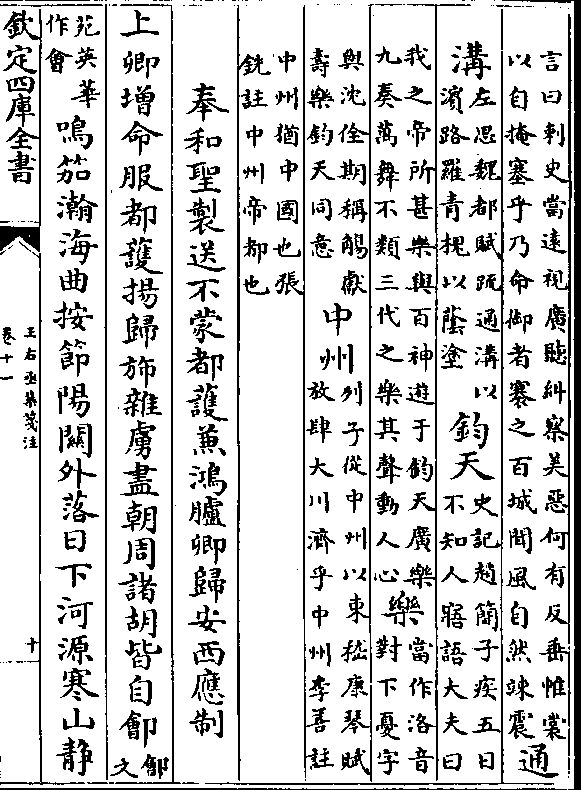 言曰刺史當遠視廣聽糾察美惡何有反垂帷裳
以自掩塞乎乃命御者褰之百城聞風自然竦震
通
溝
左思魏都賦疏通溝以
濱路羅青槐以蔭塗
鈞天
史記趙簡子疾五日
不知人寤語大夫曰
我之帝所甚樂與百神遊于鈞天廣樂
九奏萬舞不類三代之樂其聲動人心
樂
當作洛音
對下憂字
與沈佺期稱觴獻
壽樂鈞天同意
中州
列子從中州以東嵇康琴賦
放肆大川濟乎中州李善註
中州猶中國也張
銑註中州帝都也
奉和聖製送不蒙都護兼鴻臚卿歸安西應制
上卿增命服都護揚歸斾雜虜盡朝周諸胡皆自鄶
鄶
文
苑英華
作會
鳴笳瀚海曲按節陽關外落日下河源寒山静
欽定四庫全書
王右丞集箋注
卷十一
十